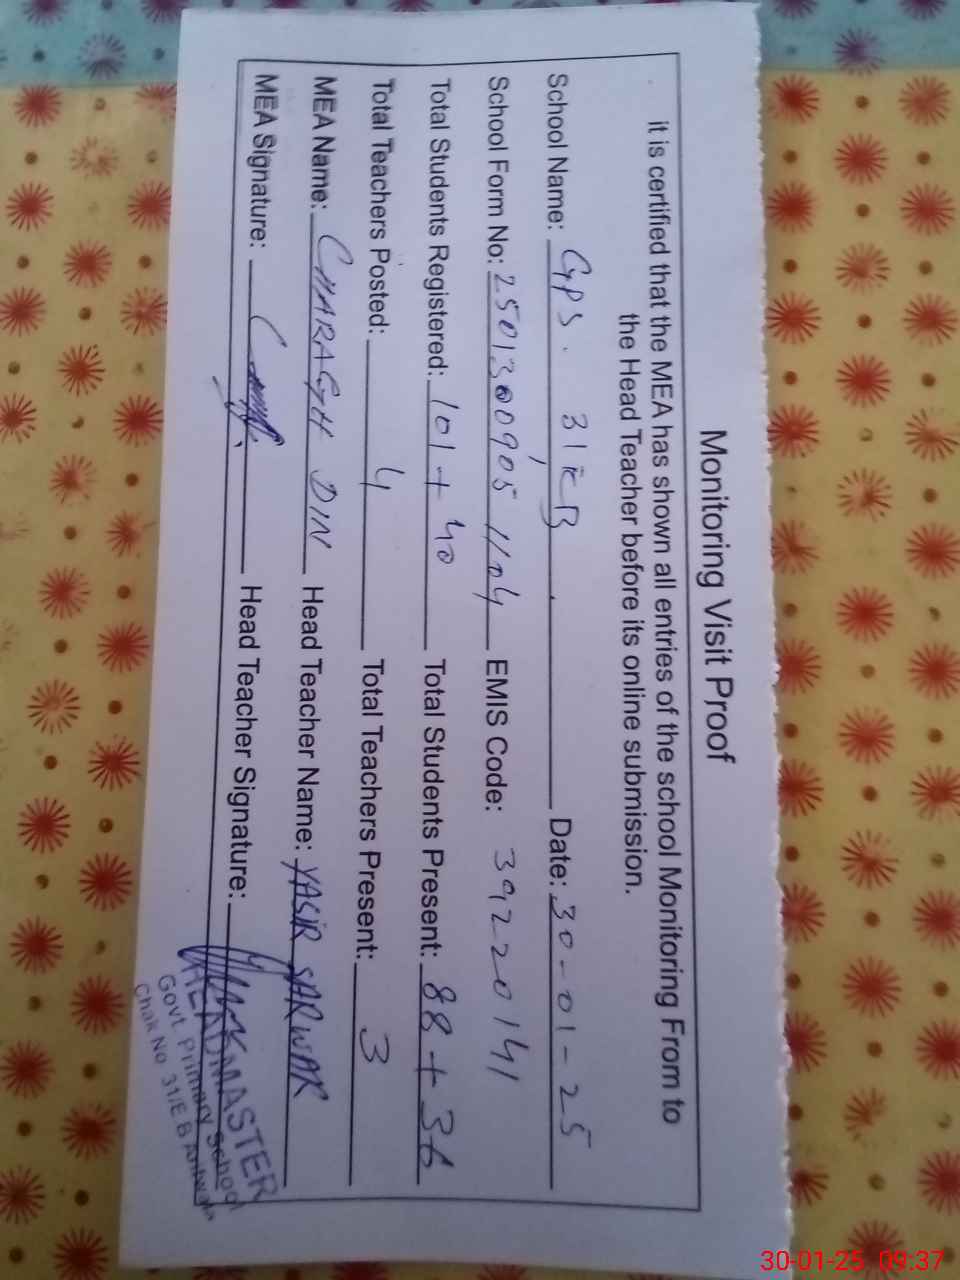 Monitoring Visit Proof
it is certified that the MEA has shown all entries of the school Monitoring From to
the Head Teacher before its online submission.
School Name: GPS. 31/EB Date: 30-01-25
School Form No: 25013000905 1104 EMIS Code: 39220141
Total Students Registered: 101 + 40 Total Students Present: 88 + 36
Total Teachers Posted: 4 Total Teachers Present: 3
MEA Name: CHARAGH DIN Head Teacher Name: YASIR SARWAR
MEA Signature: Head Teacher Signature:
HEADMASTER
Govt. Primary School
Chak No. 31/E.B Arifwala
30-01-25 09:37